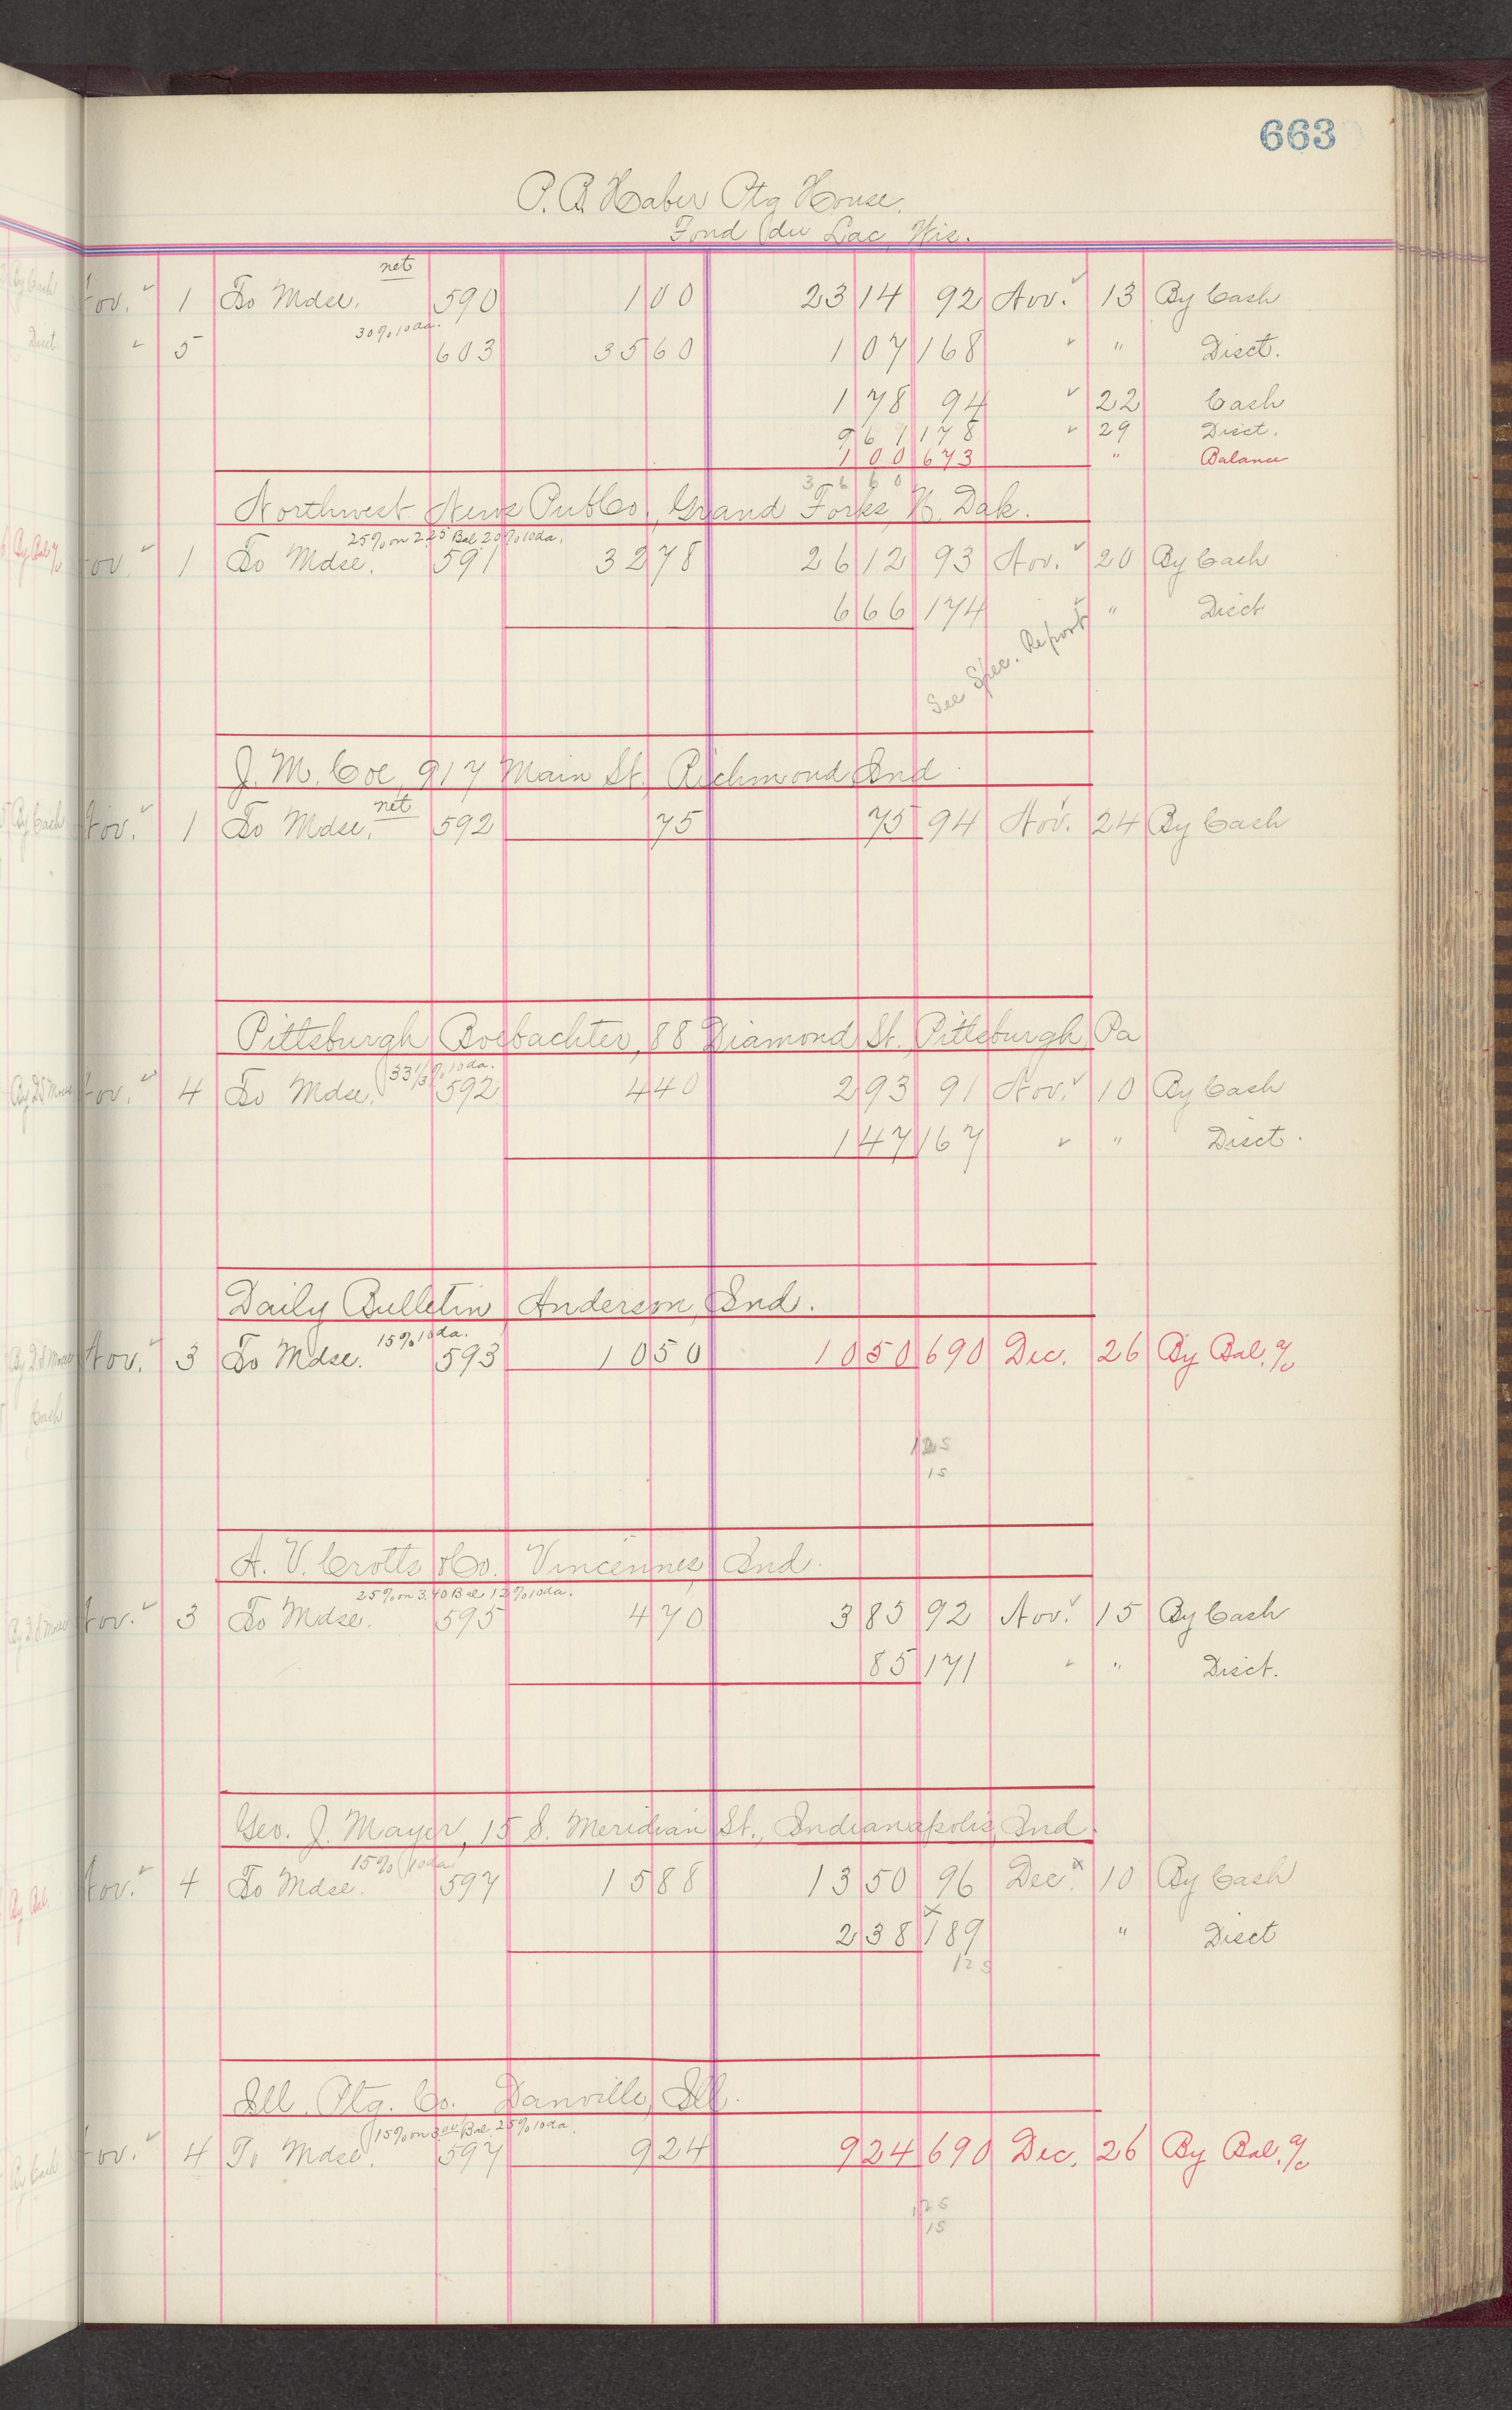 663
P. B. Haber Ptg House.
Fond du Lac, Wis.
net
Nov. 1 To Mdse. 590 1 00 23 14 92 Nov. 13 By Cash
30% 10 da.
" 5 603 35 60 1 07 168 " " Disct.
1 78 94 " 22 Cash
9 61 178 " 29 Disct.
1 00 673 " Balance
36 60
Northwest News Pub Co., Grand Forks, N. Dak.
25% on 2.25 Bal 20% 10 da.
Nov. 1 To Mdse. 591 32 78 26 12 93 Nov. 20 By Cash
6 66 174 " Disct
See Spec. Report
J. M. Coe, 917 Main St., Richmond, Ind.
net
Nov. 1 To Mdse. 592 75 75 94 Nov. 24 By Cash
Pittsburgh Boebachter, 88 Diamond St., Pittsburgh Pa
33 1/3% 10 da.
Nov. 4 To Mdse. 592 4 40 2 93 91 Nov. 10 By Cash
1 47 167 " " Disct.
Daily Bulletin, Anderson, Ind.
15% 10 da.
Nov. 3 To Mdse. 593 10 50 10 50 690 Dec. 26 By Bal. a/c
125
15
A. V. Crotts & Co. Vincennes, Ind.
25% on 3.40 Bal 12% 10 da.
Nov. 3 To Mdse. 595 4 70 3 85 92 Nov. 15 By Cash
85 171 " " Disct.
Geo. J. Mayer, 15 S. Meridian St., Indianapolis, Ind.
15% 10 da.
Nov. 4 To Mdse. 597 15 88 13 50 96 Dec. 10 By Cash
2 38 189 " Disct
125
Ill. Ptg. Co., Danville, Ill.
15% on 3.00 Bal 25% 10 da.
Nov. 4 To Mdse. 597 9 24 9 24 690 Dec. 26 By Bal. a/c
125
15